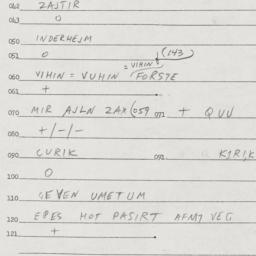 062 ZAJTIR
063 O
050 INDERHEJM
051 O (143
= VIHIN
060 VIHIN = VUHIN FORSTE
061 +
070 MIR AJLN ZAX (059 071 + QUU
080 +/-/-
090 CURIK 091 KJRIK
100 O
110 GEVEN UMETUM
120 EPES HOT PASIRT AFMJ VEG
121 +